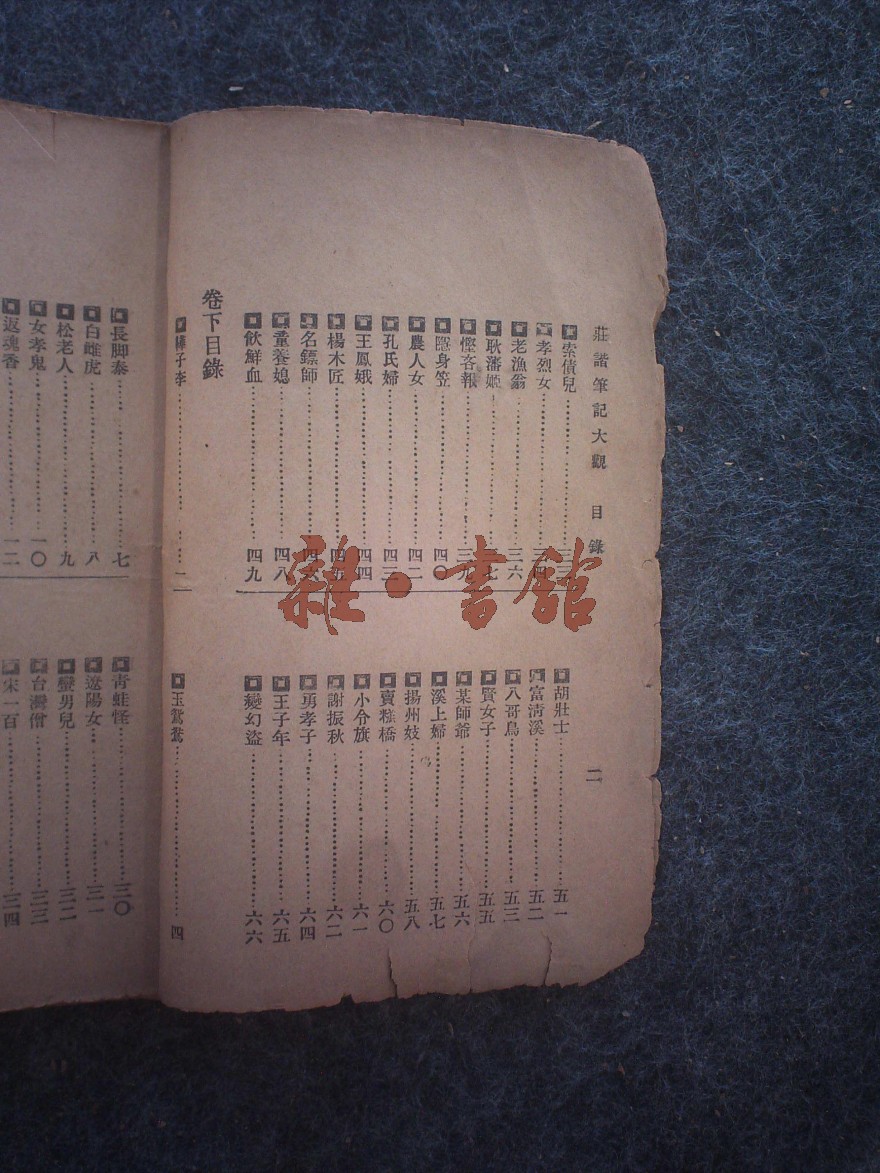 莊諧筆記大觀 目錄 二
索債兒
孝烈女
老漁翁 三六
耿藩姬
慳吝報 三九
隱身笠 四〇
農人女 四二
孔氏婦 四三
王鳳娥 四四
楊木匠 四五
名鏢師 四六
童養媳 四八
飲鮮血 四九
胡壯士 五一
富淸溪 五二
八哥鳥 五三
賢女子 五五
某師爺 五六
溪上婦 五七
揚州妓 五八
賣糕橋 六〇
小令旗 六一
謝振秋 六二
勇孝子 六四
王子年 六五
變幻盜 六六
卷下目錄
子李 二
玉鴛鴦 四
長脚泰 七
白雌虎 八
松老人 九
女孝鬼 一〇
返魂香 一二
靑蛙怪 三〇
遼陽女 三一
孿男兒 三二
台灣僧 三三
宋一百 三四
雜·書館